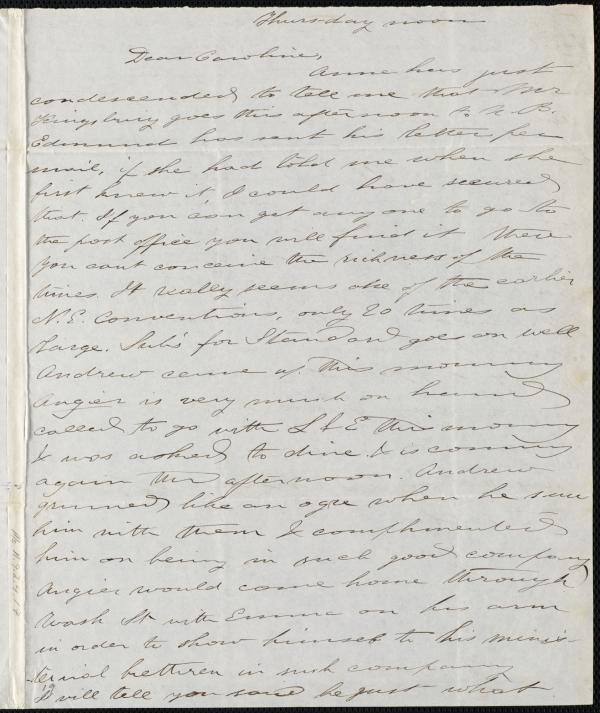 Thursday noon
Dear Caroline,
Anne has just
condescended to tell me that Mr
Kingsbury goes this afternoon to N. B.
Edmund has sent his letter per
mail, if she had told me when she
first knew it I could have secured
that. If you can get any one to go to
the post office you will find it there
you cant conceive the richness of the
times. It really seems like of the earlier
N. E. Conventions, only 20 times as
large. Sub's for Standard goes on well
Andrew came up this morning
Angier is very much on hand
called to go with L & E this morning
& was asked to dine & is coming
again this afternoon. Andrew
grinned like an ogre when he saw
him with them & complimented
him on being in such good company
Angier would come home through
Wash St with Emma on his arm
in order to show himself to his minis-
-terial brethren in such company
I will tell you said he just what